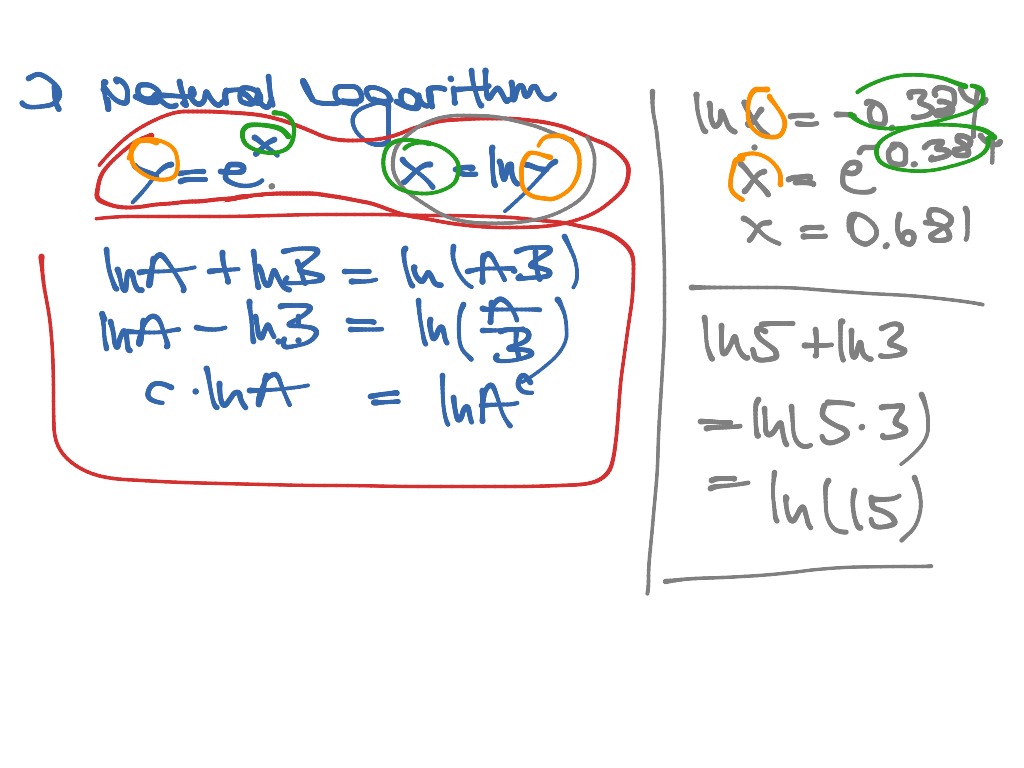 2) Natural Logarithm
y = e^x    x = ln y
ln A + ln B = ln (A·B)
ln A − ln B = ln (A/B)
c · ln A = ln A^c
ln x =
x = e^−0.384
x = 0.681
ln 5 + ln 3
= ln (5 · 3)
= ln (15)